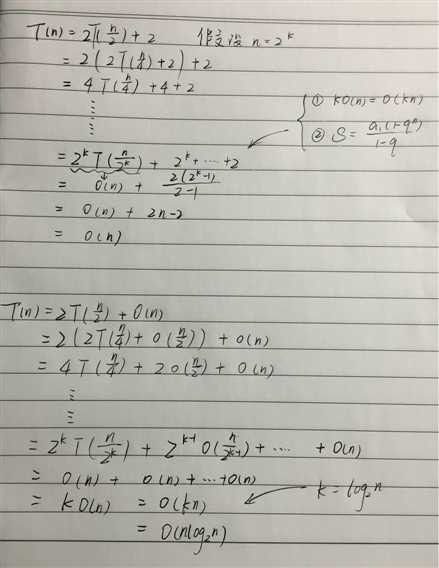 T(n) = 2T(n/2) + 2   假设 n = 2^k
= 2(2T(n/4) + 2) + 2
= 4T(n/4) + 4 + 2
⋮
① kO(n) = O(kn)
② S = a₁(1-qⁿ)/(1-q)
= 2^k T(n/2^k) + 2^k + ⋯ + 2
= O(n) + 2(2^k-1)/(2-1)
= O(n) + 2n-2
= O(n)
T(n) = 2T(n/2) + O(n)
= 2(2T(n/4) + O(n/2)) + O(n)
= 4T(n/4) + 2O(n/2) + O(n)
⋮
= 2^k T(n/2^k) + 2^(k-1) O(n/2^(k-1)) + ⋯ + O(n)
= O(n) + O(n) + ⋯ + O(n)
= kO(n) = O(kn)   k = log₂n
= O(nlog₂n)